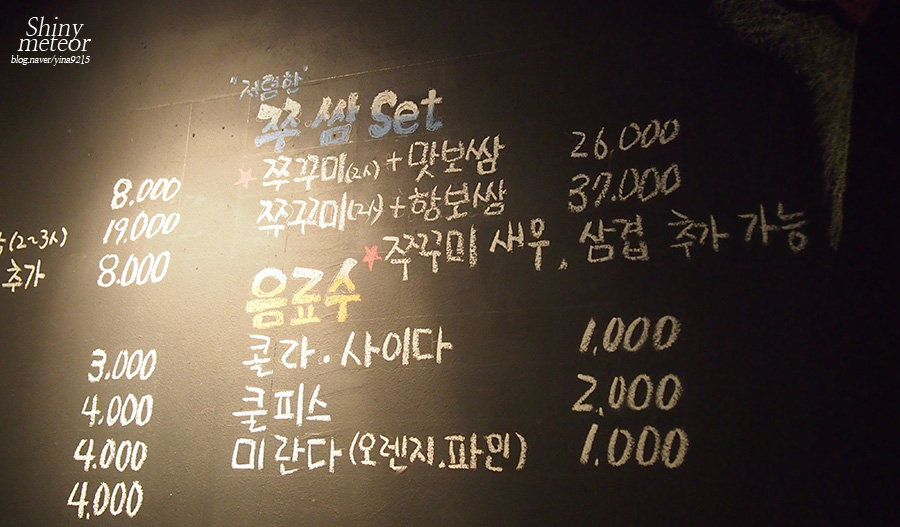 Shiny
meteor
blog.naver/yina9215
"저렴한"
쭈.쌈 Set
쭈꾸미(2人)+맛보쌈 26.000
쭈꾸미(2人)+항보쌈 37.000
쭈꾸미 새우, 삼겹 추가 가능
음료수
콜라.사이다 1.000
쿨피스 2.000
미란다(오렌지.파인) 1.000
8.000
(2~3人) 19.000
추가 8.000
3.000
4.000
4.000
4.000